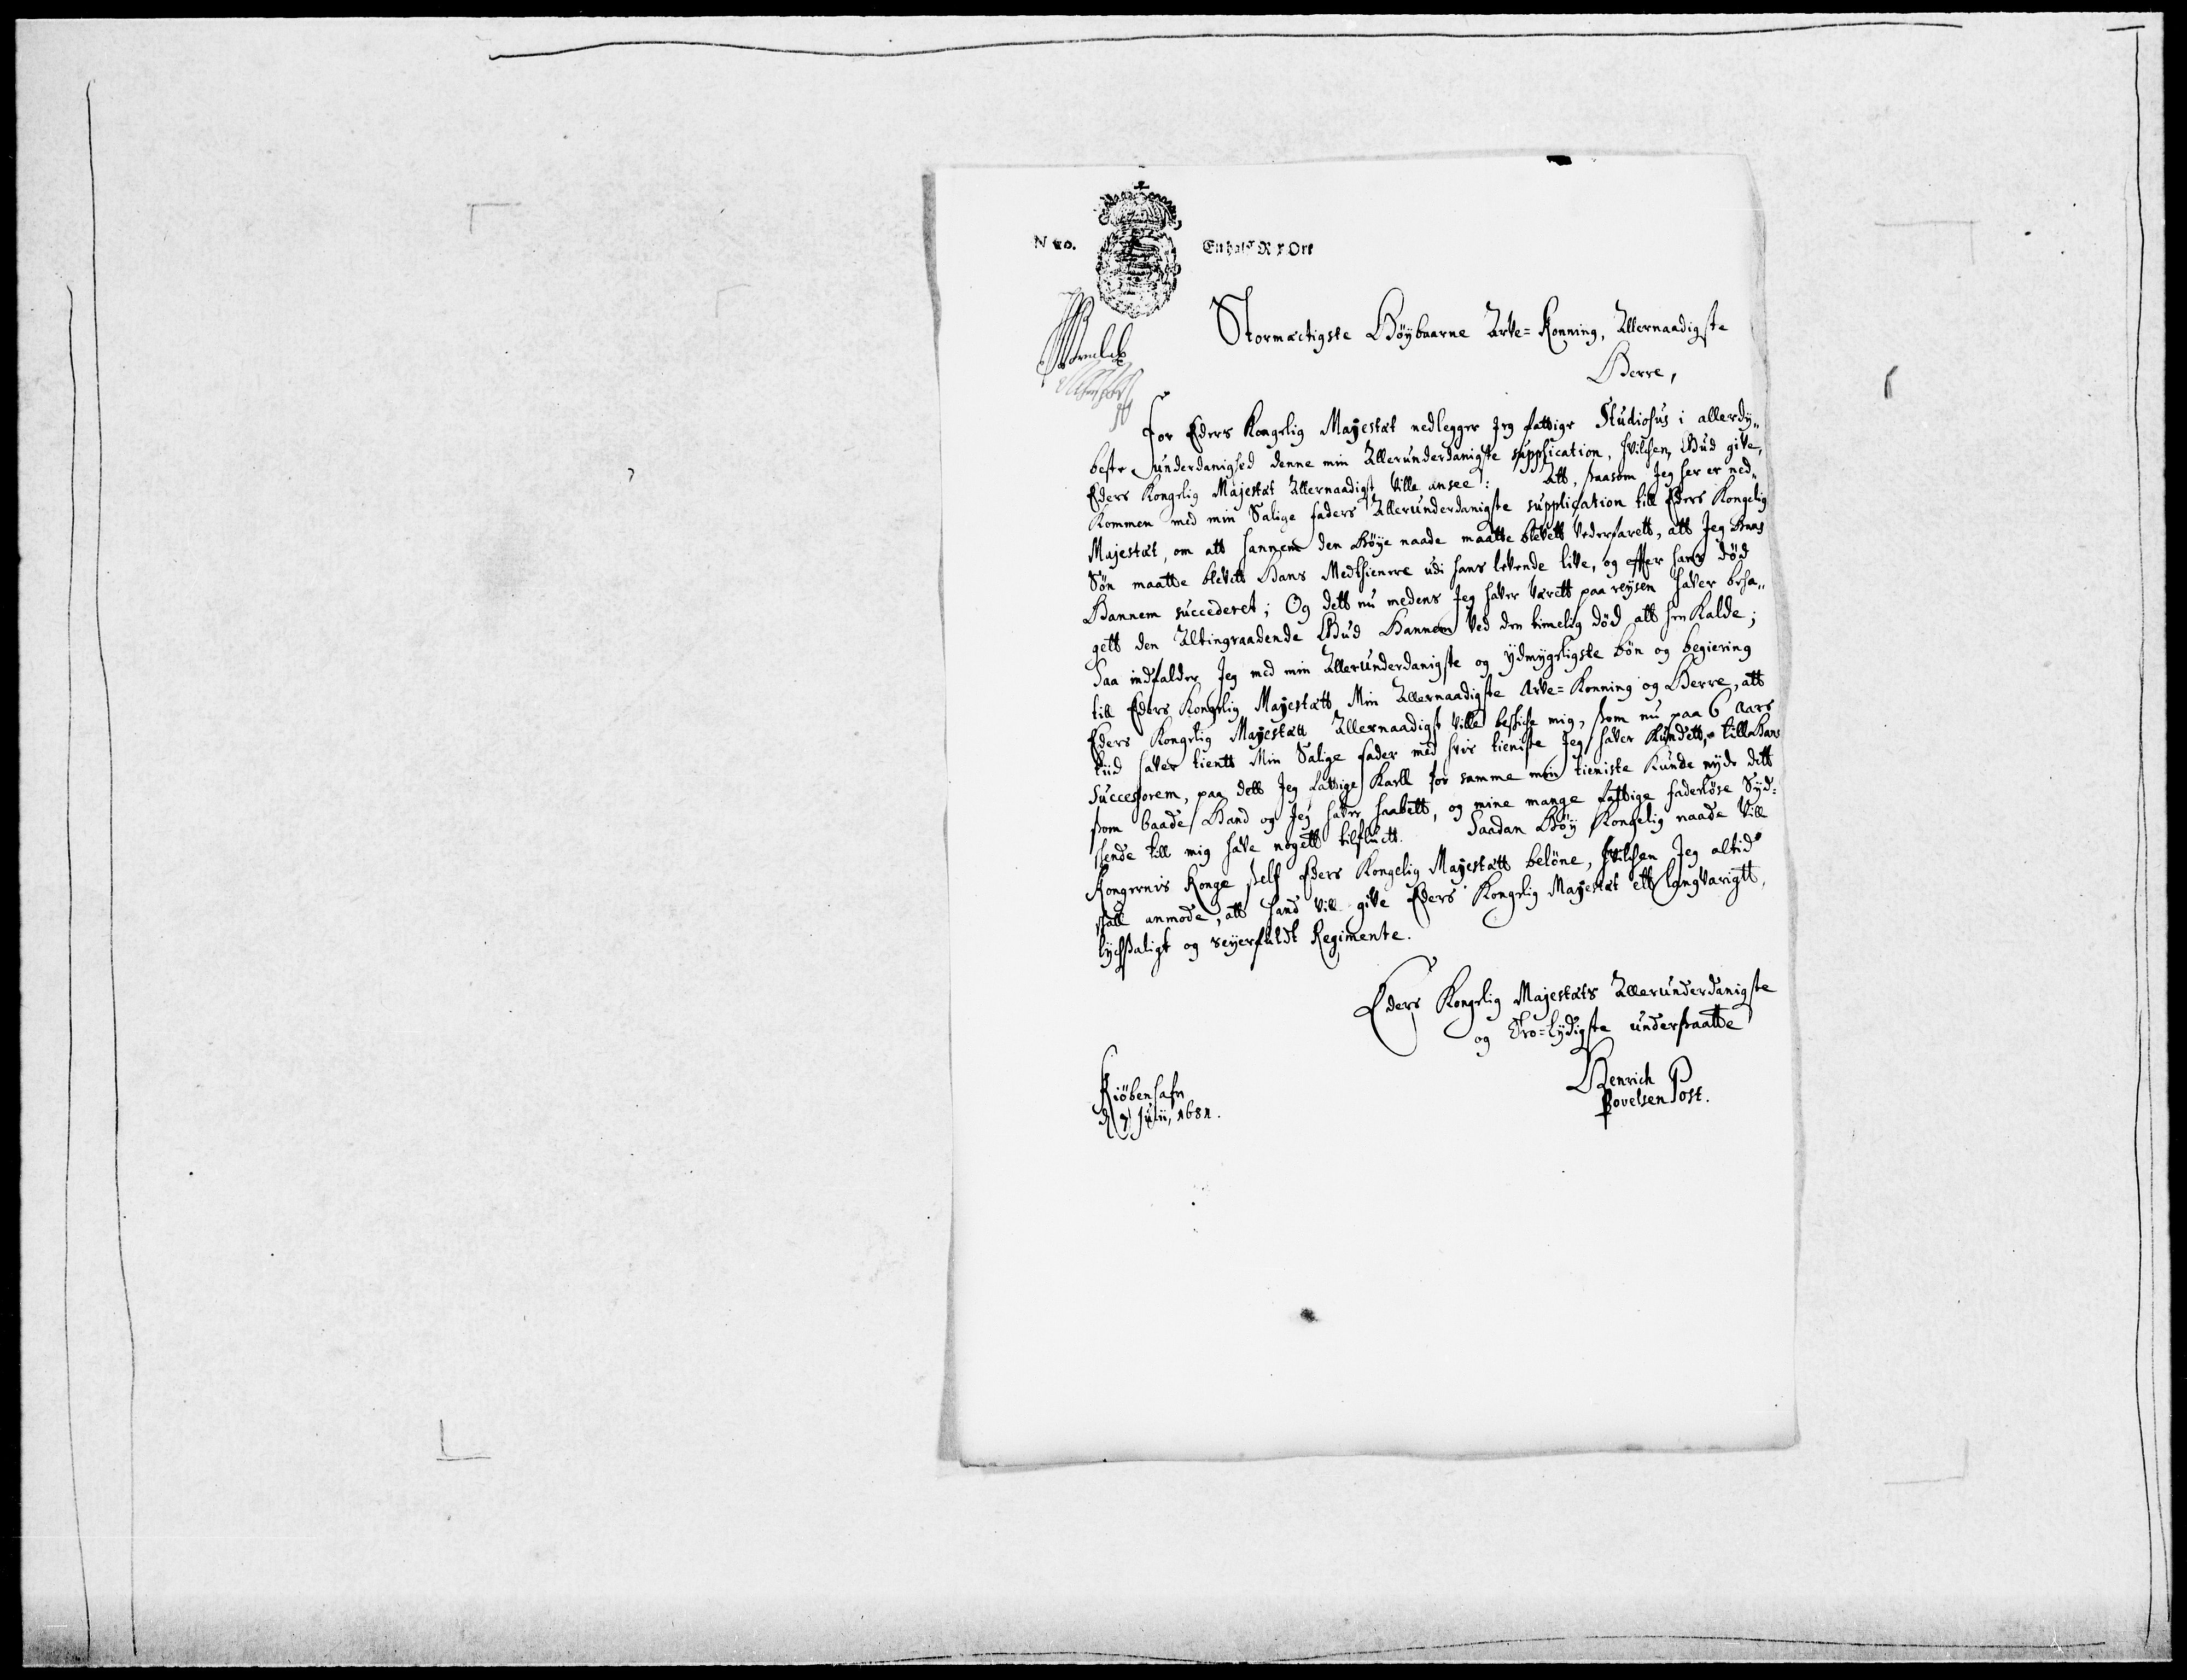 Stormæctigste Høybaarne Arfve=Konning, Allernaadigste
Herre,
For Eders Kongelig Mayestæt nedlegger Jeg fattige Studiosus i allerdy„
beste underdanighed denne min Allerunderdanigste supplication, hvilchen, Gud give,
Eders Kongelig Majestæt Allernaadigst ville ansee: Att, saasom Jeg her er ned„
kommen med min Salige faders Allerunderdanigste supplication till Eders Kongelig
Majestæt, om att hannem den Høye naade maatte blevett vederfarett, att Jeg Hans
Søn maatte blevett Hans Medthienere udi hans levende live, og effter hans død
Hannem succederet; Og dett nu medens Jeg haver værett paa reysen haver beha„
gett den Altingraadende Gud Hannem ved den timelig død att hen kalde;
Saa indfalder Jeg med min Allerunderdanigste og ydmygeligste bøn og begiering
till Eders Kongelig Mayestætt Min Allernaadigste Arve=Konning og Herre, att
Eders Kongelig Mayestætt Allernaadigst ville beskicke mig, som nu paa 6 Aars
tiid haver tientt Min Salige fader med hvis tieniste Jeg haver kundett, till Hans
Successorem, paa dett Jeg fattige Karll for samme min tieniste kunde nyde dett
som baade Hand og Jeg haver haabett, og mine mange fattige faderløse Syd=
skende till mig have nogett tilfluctt. Saadan Høy Kongelig naade vill
Kongernis Konge self Eders Kongelig Mayestætt beløne, hvilchen Jeg altid
skall anmode, att hand vill give Eders Kongelig Mayestæt ett langvarigtt,
lychsaligt og seyerfuldt Regimente.
Eders Kongelig Majestæts Allerunderdanigste
og Tro=lydigste undersaatte
Kiøbenhafn
d 7 Julii, 1681.
Henrich
Povelsen Post.